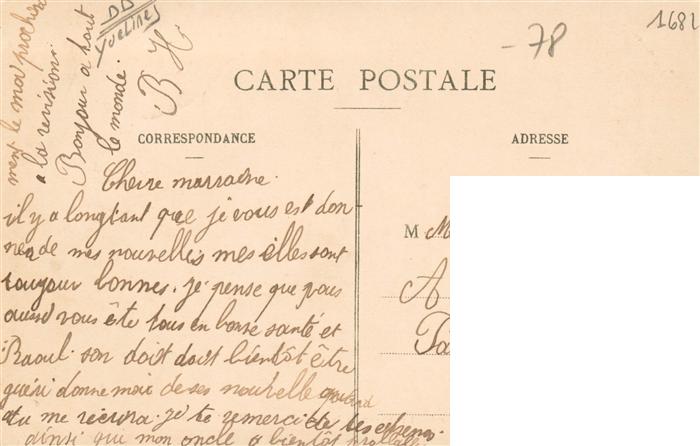 1682
DD
Yvelines
- 78
CARTE POSTALE
CORRESPONDANCE
ADRESSE
Chere marraine.
il y a longtant que je vous est don
née de mes nouvelles mes elles sont
toujour bonnes. je pense que vous
aussi vous ête tous en bonne santé et
Raoul son doit doit bientôt être
guéri donne moi de ses nouvelle quand
tu me récrira. je te remerci de tes
ainsi que mon oncle a bientôt
ment le moi prochain
a la revision.
Bonjour a tout
le monde.
B H
M M
A
Pa